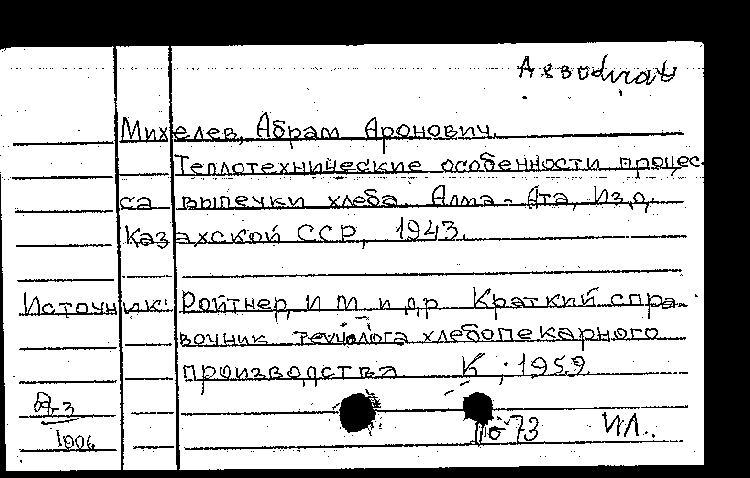 Михелев, Абрам Аронович.
Теплотехнические особенности процес-
са выпечки хлеба. Алма-Ата, Изд.
Казахской ССР, 1943.
Источник: Ройтнер, И М и др Краткий спра-
вочник технолога хлебопекарного
производства К.; 1959
1006
73 ИЛ.